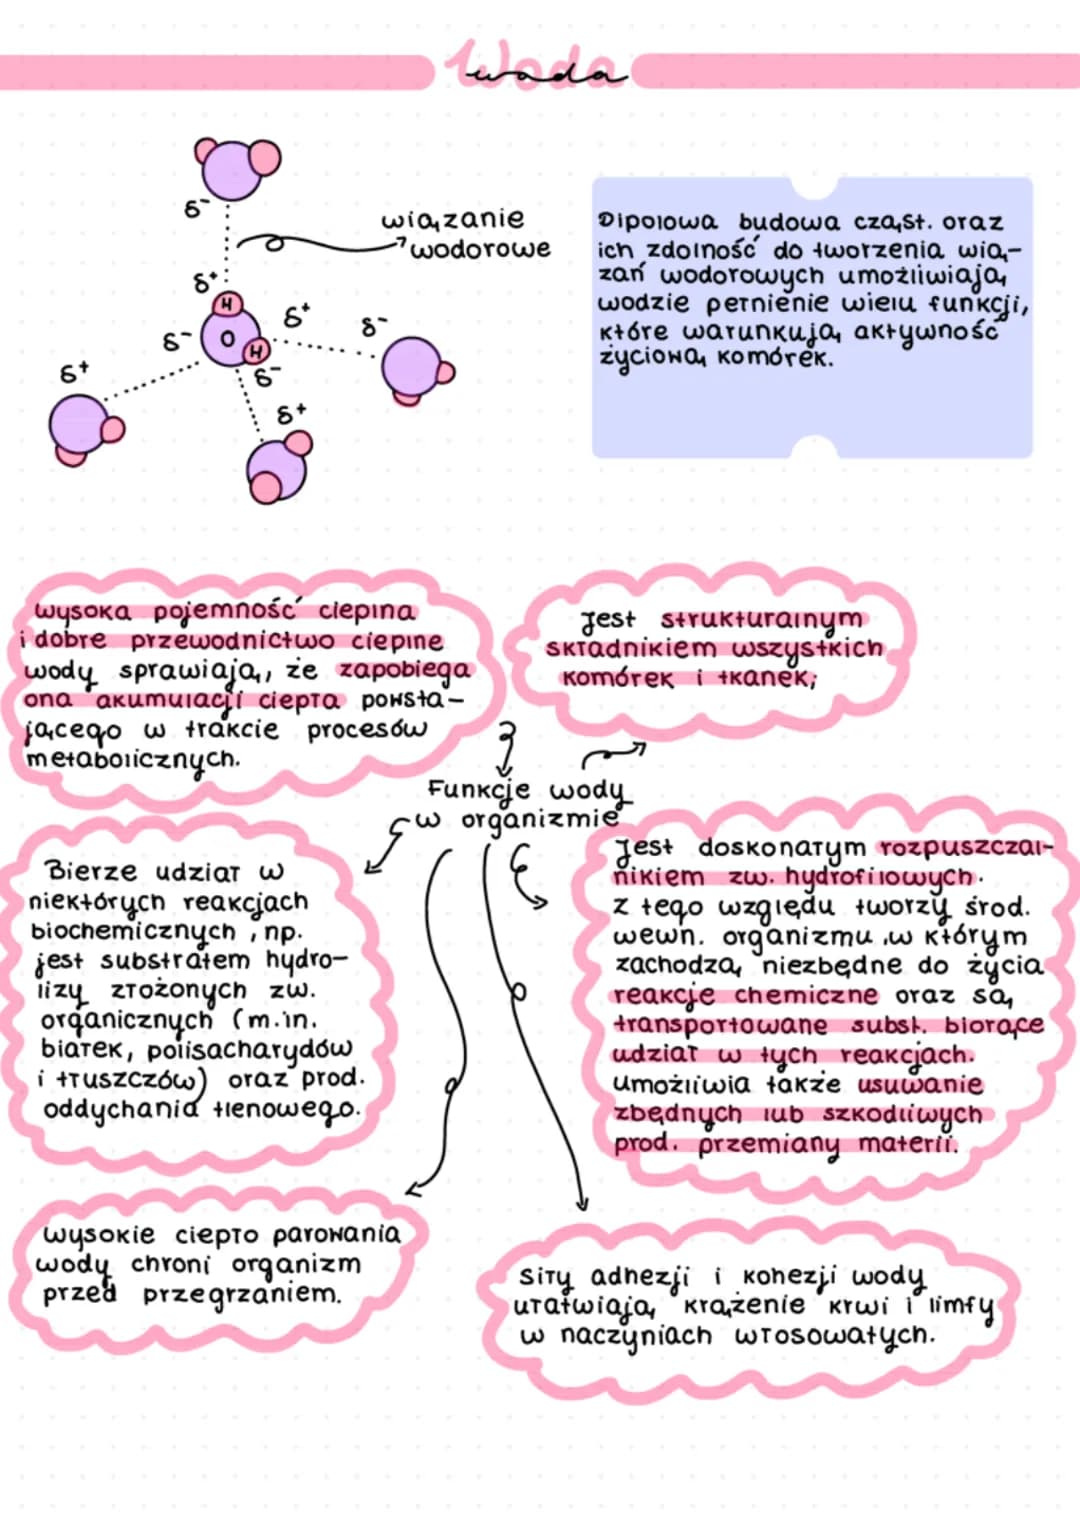 Woda
woda
δ-
wiązanie
wodorowe
δ+
H
δ+
δ-
δ-
O
H
δ-
δ+
δ+
Dipolowa budowa cząst. oraz
ich zdolność do tworzenia wią-
zań wodorowych umożliwiają
wodzie pełnienie wielu funkcji,
które warunkują aktywność
życiową komórek.
Wysoka pojemność cieplna
i dobre przewodnictwo cieplne
wody sprawiają, że zapobiega
ona akumulacji ciepła powsta-
jącego w trakcie procesów
metabolicznych.
Jest strukturalnym
składnikiem wszystkich
komórek i tkanek;
Funkcje wody
w organizmie
Bierze udział w
niektórych reakcjach
biochemicznych, np.
jest substratem hydro-
lizy złożonych zw.
organicznych (m.in.
białek, polisacharydów
i tłuszczów) oraz prod.
oddychania tlenowego.
Jest doskonałym rozpuszczal-
nikiem zw. hydrofilowych.
Z tego względu tworzy środ.
wewn. organizmu, w którym
zachodzą niezbędne do życia
reakcje chemiczne oraz są
transportowane subst. biorące
udział w tych reakcjach.
Umożliwia także usuwanie
zbędnych lub szkodliwych
prod. przemiany materii.
Wysokie ciepło parowania
wody chroni organizm
przed przegrzaniem.
Siły adhezji i kohezji wody
ułatwiają krążenie krwi i limfy
w naczyniach włosowatych.